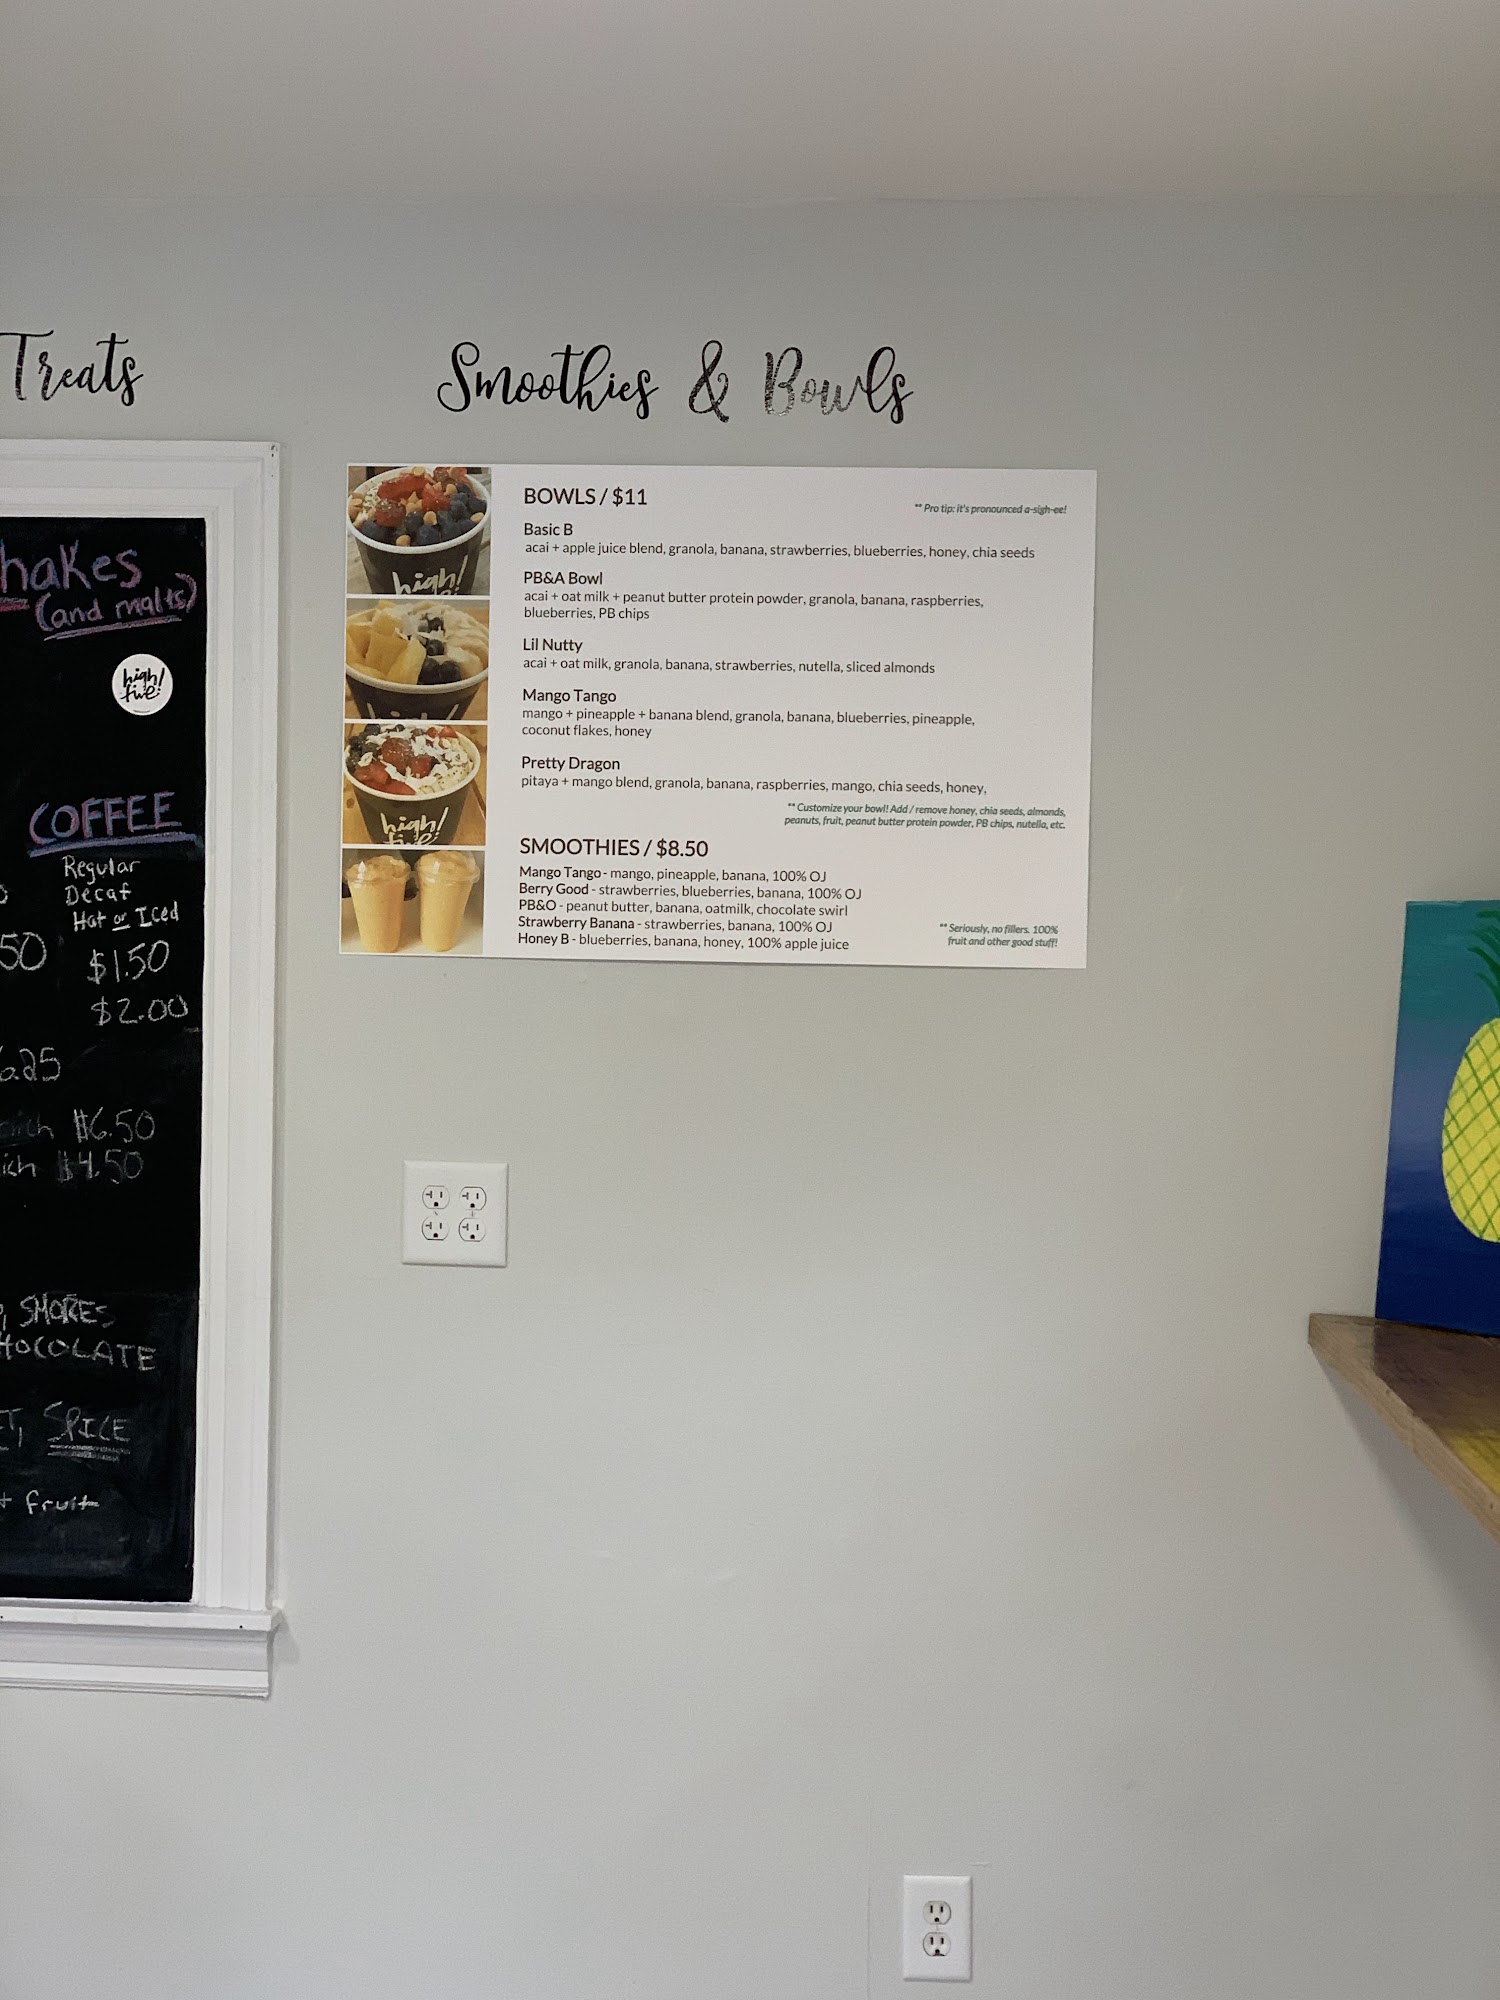 Treats
Smoothies & Bowls
hakes
(and malts)
high
five!
COFFEE
Regular
Decaf
Hot or Iced
50
$1.50
$2.00
6.25
$6.50
ich $4.50
SMORES
HOCOLATE
SPICE
fruit
BOWLS / $11
** Pro tip: it's pronounced a-sigh-ee!
Basic B
acai + apple juice blend, granola, banana, strawberries, blueberries, honey, chia seeds
PB&A Bowl
acai + oat milk + peanut butter protein powder, granola, banana, raspberries,
blueberries, PB chips
Lil Nutty
acai + oat milk, granola, banana, strawberries, nutella, sliced almonds
Mango Tango
mango + pineapple + banana blend, granola, banana, blueberries, pineapple,
coconut flakes, honey
Pretty Dragon
pitaya + mango blend, granola, banana, raspberries, mango, chia seeds, honey,
** Customize your bowl! Add / remove honey, chia seeds, almonds,
peanuts, fruit, peanut butter protein powder, PB chips, nutella, etc.
SMOOTHIES / $8.50
Mango Tango - mango, pineapple, banana, 100% OJ
Berry Good - strawberries, blueberries, banana, 100% OJ
PB&O - peanut butter, banana, oatmilk, chocolate swirl
Strawberry Banana - strawberries, banana, 100% OJ
Honey B - blueberries, banana, honey, 100% apple juice
** Seriously, no fillers. 100%
fruit and other good stuff!
high!
high!
five!